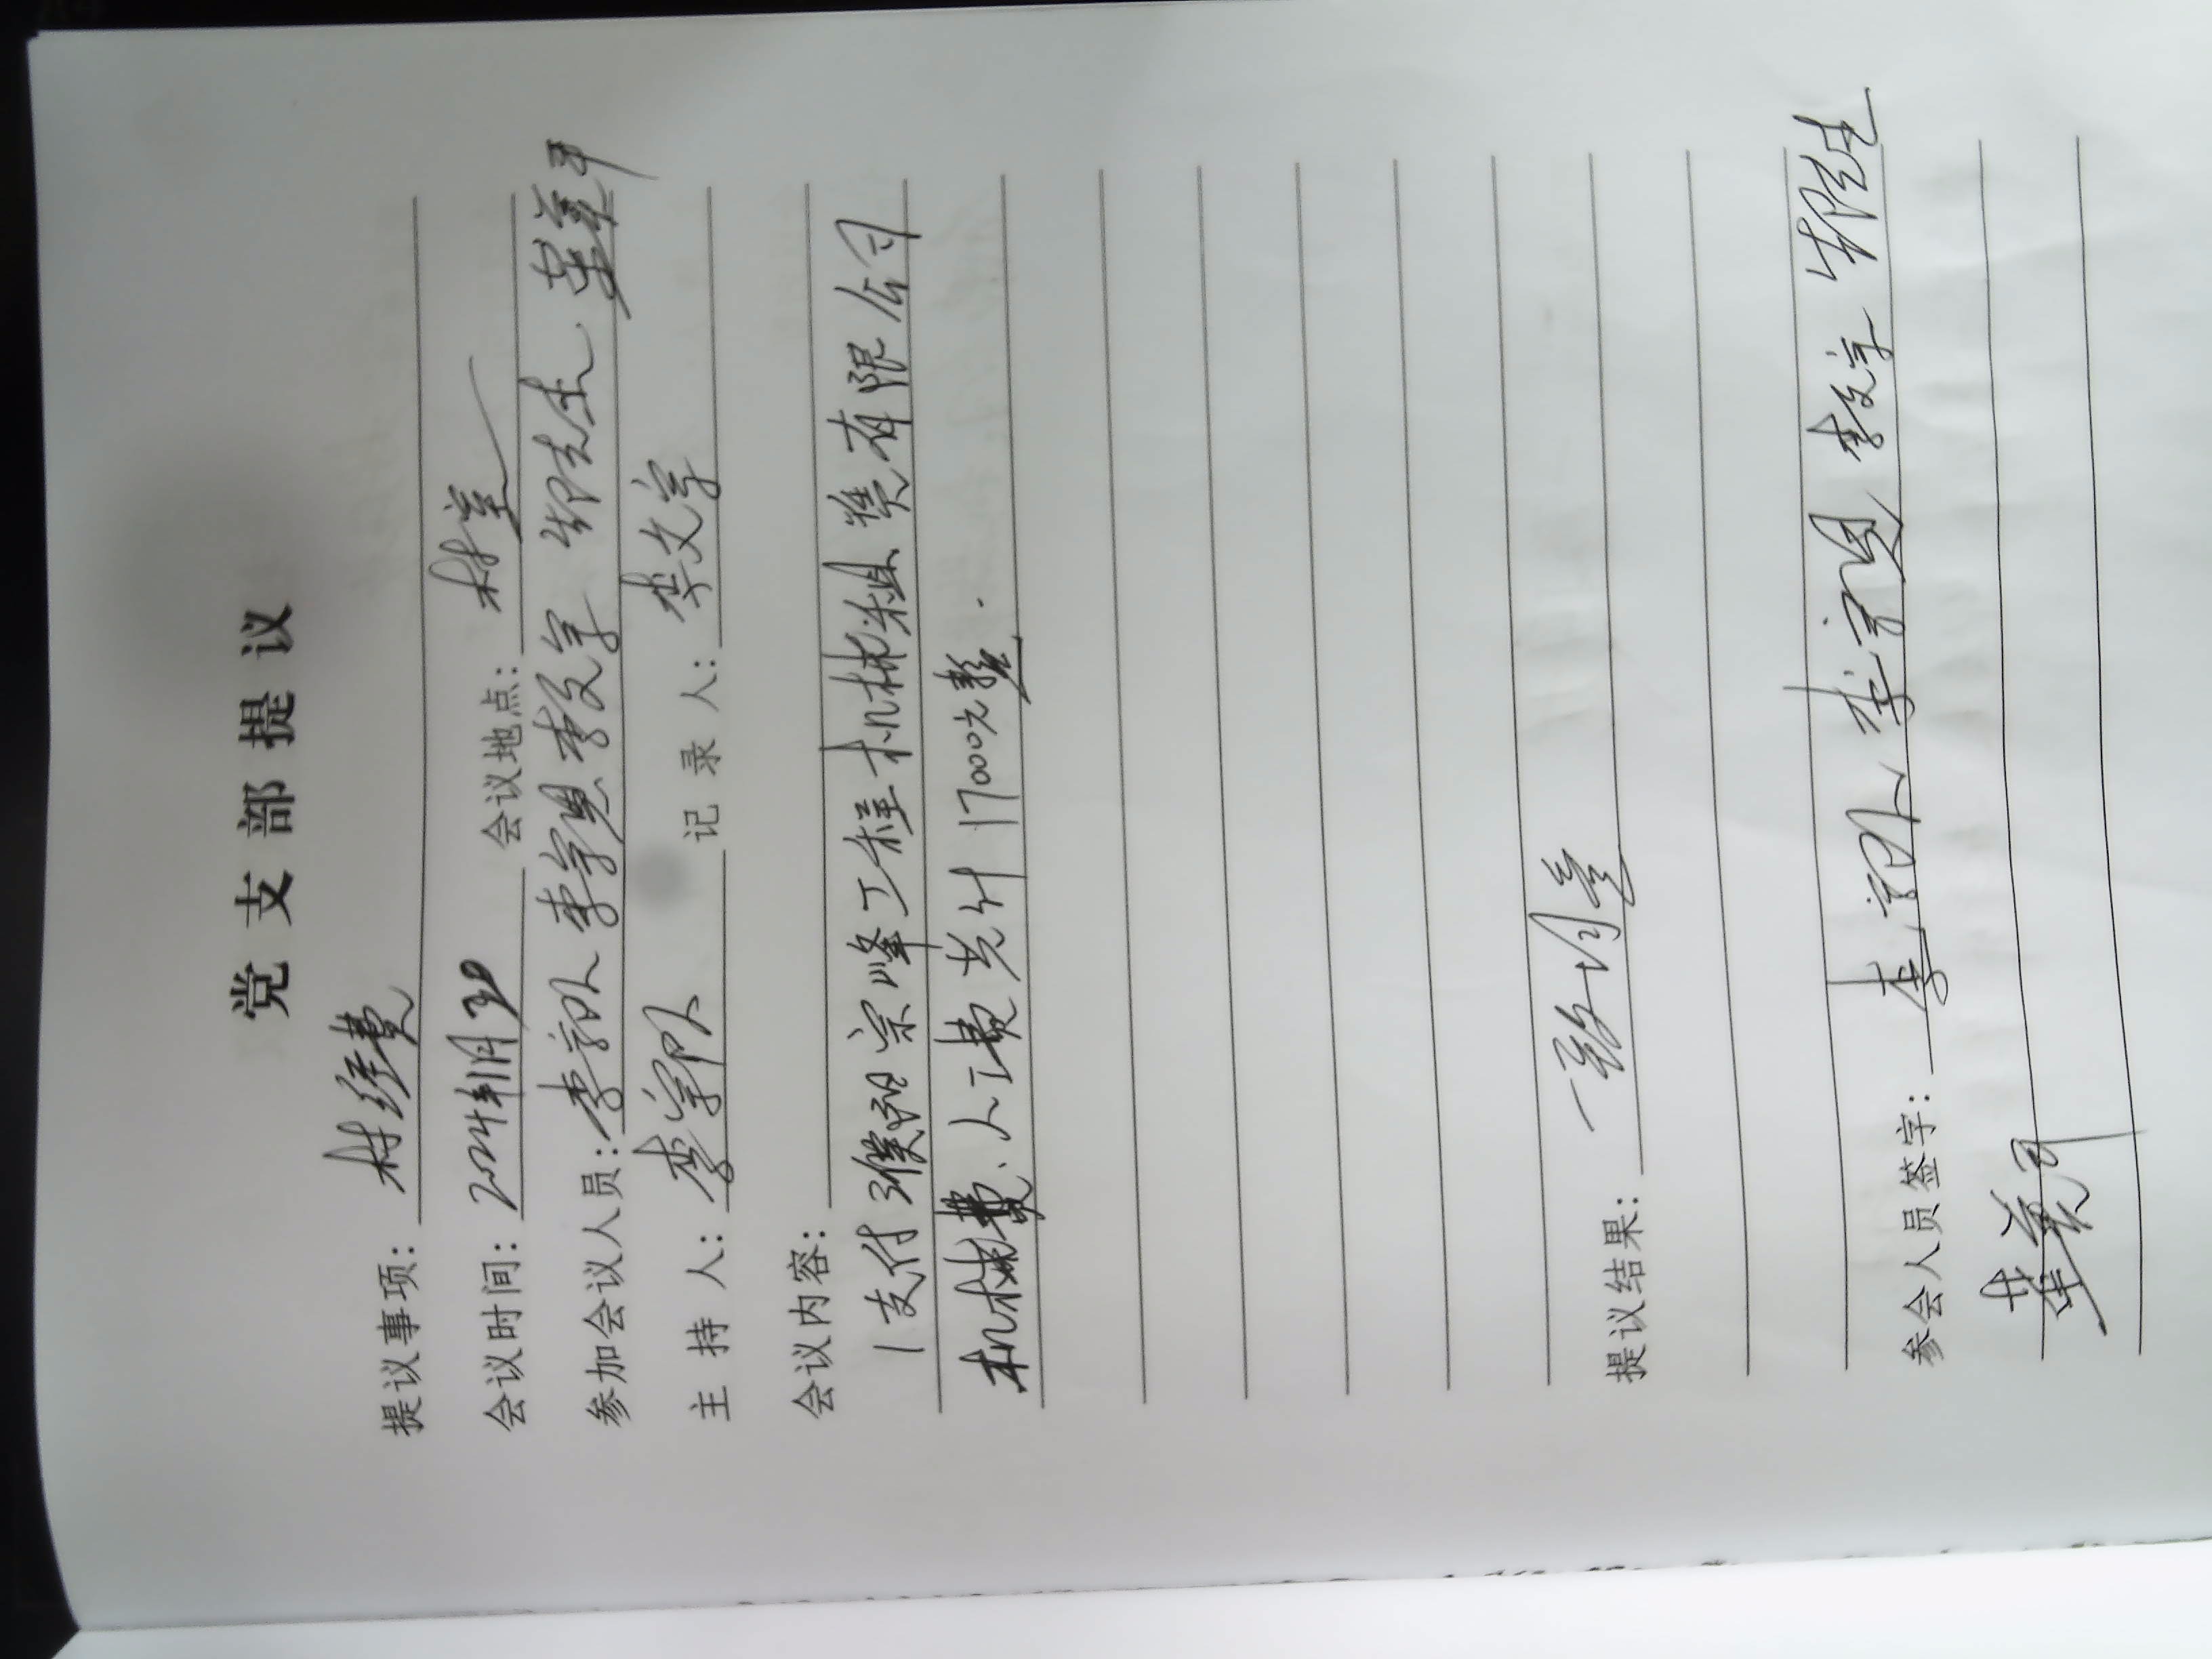 党支部提议
提议事项: 村经费
会议时间: 2024年1月30 会议地点: 村室
参加会议人员: 李宗队 李宗恩 李文字 郑先杰 董美平
主持人: 李宗队 记录人: 李文字
会议内容:
1支付濮阳宗峰工程机械租赁有限公司
机械费、人工费共计17000元整.
提议结果: 一致同意
参会人员签字: 李宗队 李宗恩 李文字
董美平